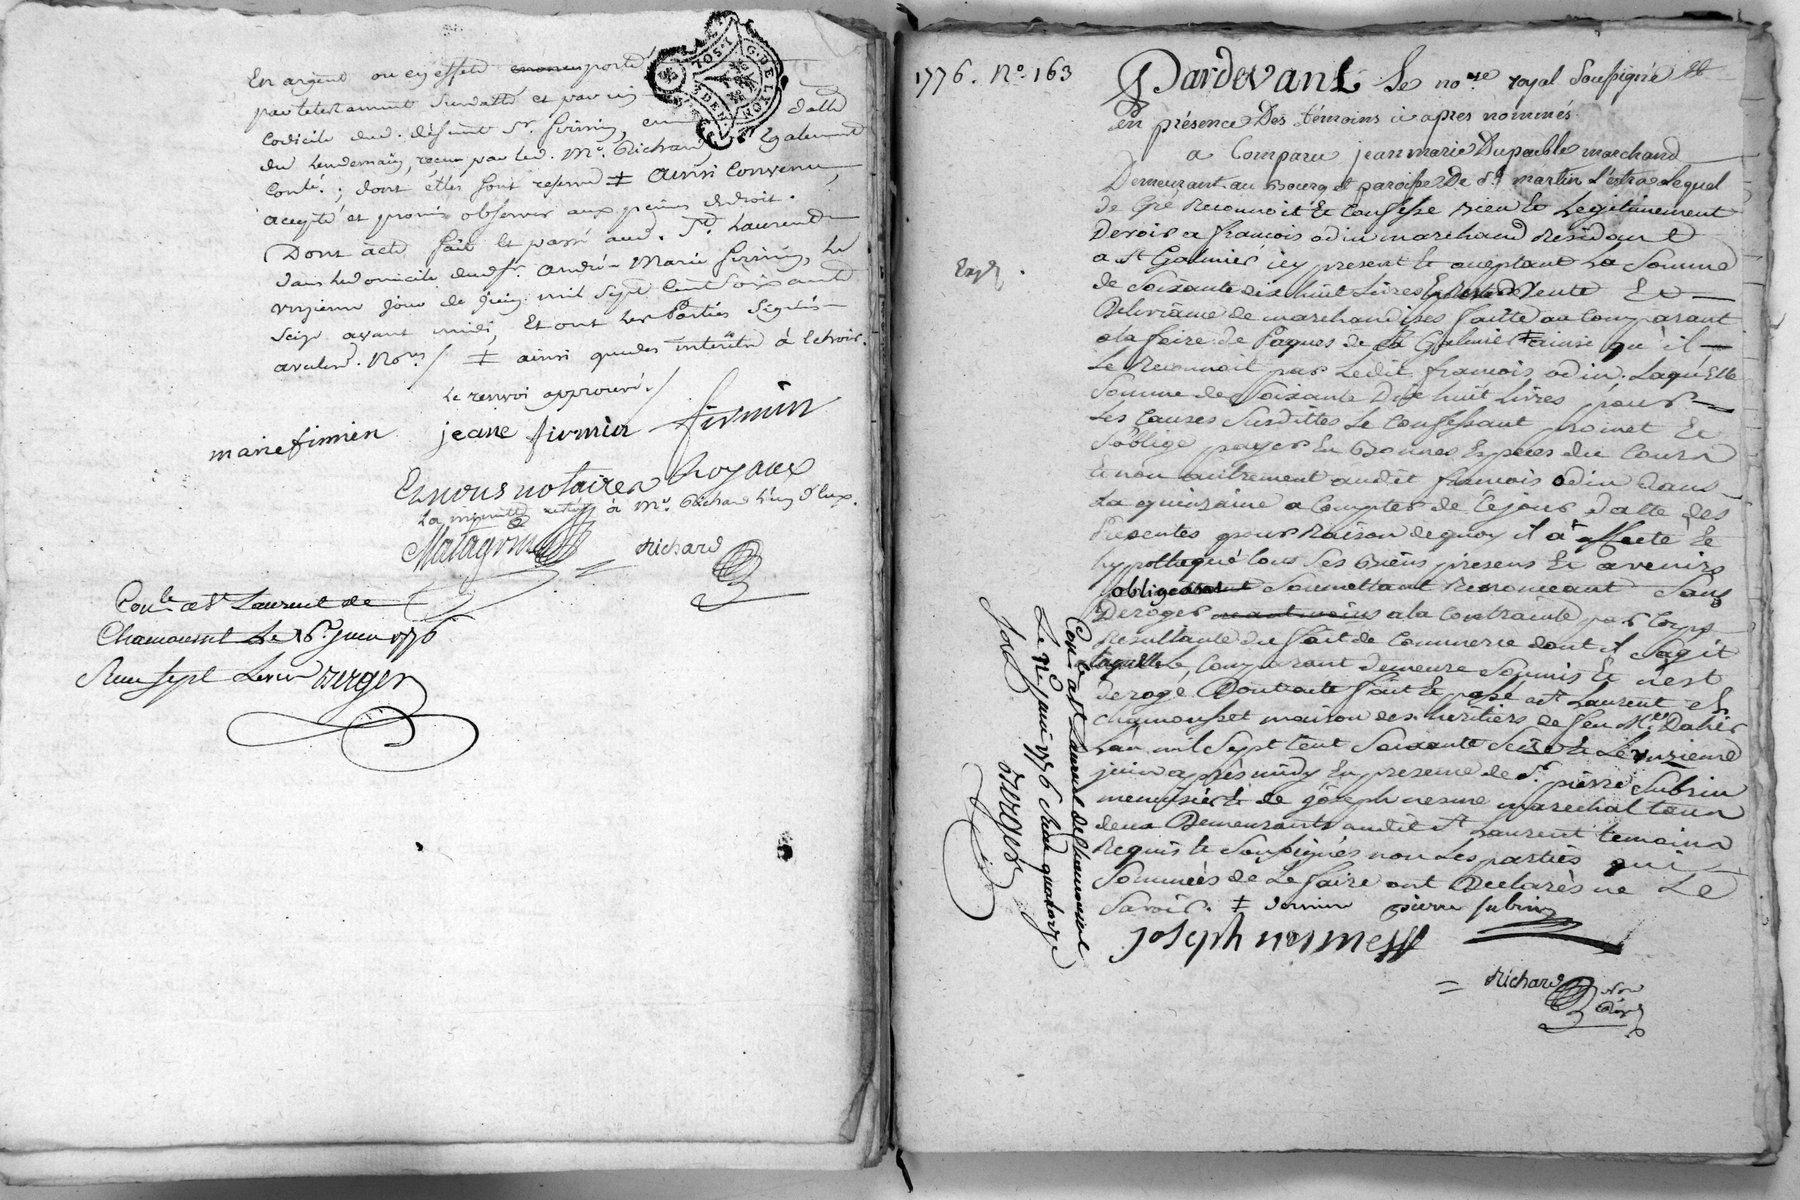 En argent ou en effets porté
par testament susdatté et par un datté
Codicile dud. défunt Sr. firmin, en
du lendemain, reçu par led. Me. Richard, Egalement
Conlé.; dont elles sont reserve ‡ ainsi Convenu,
accepté et promis observer aux peines de droit.
Dont acte fait et passé aud. St. Laurent
dans le domicile dud. Sr. André Marie firmin, le
unzieme jour de juin mil sept Cent soixante
seize avant midi, Et ont les Parties signés
avec lesd. Nores / ‡ ainsi que des interêts à echoir.
Le renvoi approuvé /
marie firmin jeane firmin firmin
Et nous notaires Royaux
La minutte restée à Me. Richard l'un d'Eux.
Matagrin
Richard
Conlé a St Laurent de
Chamousset Le 16e. juin 1776
Reçu sept Livres Berger
G. DE LYON
1776. No. 163
Pardevant Le nore. royal Soussigné &
En présence Des témoins ci apres nommés
a Comparu jean marie Dupeuble marchand
Demeurant au Bourg et paroisse De St. martin L'estra Lequel
de Gré Reconnoit Et Confesse Bien Et Legitimement
Devoir a francois odin marchand Residant
a St Galmier icy present Et aceptant La Somme
de Soixante dix huit Livres Vente Et
Delivrance de marchandises faitte au Comparant
a la foire de Paques de St Galmier ‡ ainsi qu'il
Le Reconnoit par Ledit francois odin. Laquelle
Somme de Soixante Dix huit Livres pour
Les Causes Susdittes Le Confessant promet Et
S'oblige payer En Bonnes Especes du Cours
Et non autrement audit francois odin dans
La quinzaine a Compter de Ce jour datte des
Presentes pour Raison de quoy il a affecté Et
hypothequé tous Ses Biens presens Et avenirs
obligeant Soumettant Renonceant Sans
Deroger a la Contrainte par Corps
Resultante du fait de Commerce dont il S'agit
Laquelle Comparant demeure Soumis Et n'est
derogé. Dont acte fait Et passé a St Laurent de
Chamousset maison des heritiers de feu Mr. Dahier
L'an mil Sept Cent Soixante Seize Et Le unzieme
juin après midy En presence de Sr. pierre Subrin
menuisier Et de joseph nesme marechal tous
deux Demeurants audit St Laurent temoins
Requis Et Soussignés non Les parties qui
Sommées de Le faire ont Declarés ne Le
Savoir. ‡ dernier pierre subrin
joseph nesme
Richard Nore
Royl
Exp.
Conlé a St Laurent de Chamousset
Le 12e juin 1776 Reçu quatorze
Sols Berger